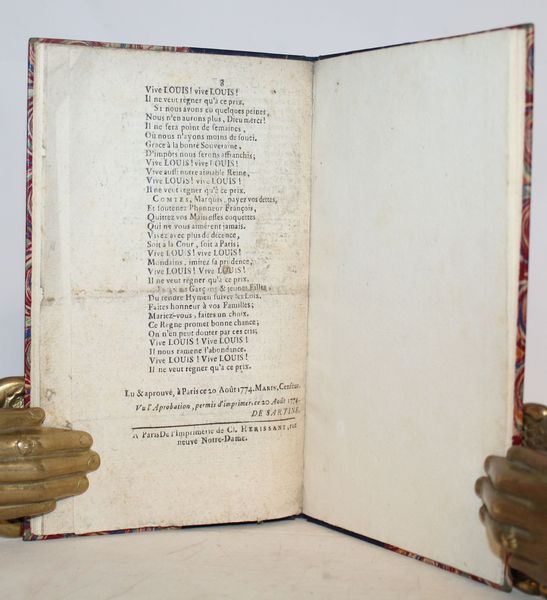 8
Vive LOUIS! vive LOUIS!
Il ne veut régner qu'à ce prix.
SI nous avons eu quelques peines,
Nous n'en aurons plus, Dieu merci!
Il ne sera point de semaines,
Où nous n'ayons moins de souci,
Grace à la bonté Souveraine,
D'impôts nous serons affranchis;
Vive LOUIS! vive LOUIS!
Vive aussi notre aimable Reine,
Vive LOUIS! vive LOUIS!
Il ne veut régner qu'à ce prix.
COMTES, Marquis, payez vos dettes,
Et soutenez l'honneur François,
Quittez vos Maitresses coquettes
Qui ne vous aimérent jamais.
Vivez avec plus de décence,
Soit à la Cour, soit à Paris;
Vive LOUIS! vive LOUIS!
Mondains, imitez sa prudence,
Vive LOUIS! Vive LOUIS!
Il ne veut régner qu'à ce prix.
Garçons & jeunes Filles,
Du tendre Hymen suivez les Loix,
Faites honneur à vos Familles;
Mariez-vous, faites un choix.
Ce Regne promet bonne chance;
On n'en peut douter par ces cris;
Vive LOUIS! Vive LOUIS!
Il nous ramene l'abondance.
Vive LOUIS! Vive LOUIS!
Il ne veut régner qu'à ce prix.
Lu & aprouvé, à Paris ce 20 Août 1774. MARIN, Censeur.
Vu l'Aprobation, permis d'imprimer, ce 20 Août 1774.
DE SARTINE.
A Paris De l'Imprimerie de Cl. HERISSANT, rue
neuve Notre-Dame.